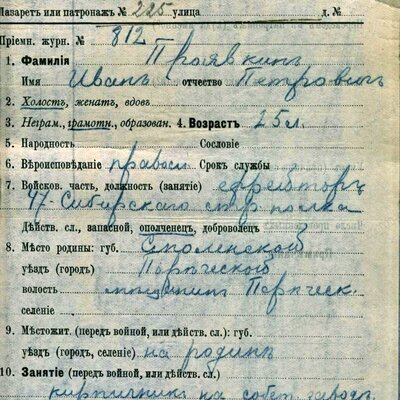 Лазаретъ или патронажъ № 225 улица д. №
Пріемн. журн. № 812
1. Фамилія Прявкинъ
Имя Иванъ отчество Петровичъ
2. Холостъ, женатъ, вдовъ.
3. Неграм., грамотн., образован. 4. Возрастъ 25 л.
5. Народность Сословіе
6. Вѣроисповѣданіе правосл Срокъ службы
7. Войсков. часть, должность (занятіе) ефрейторъ
47- Сибирскаго стр полка
Дѣйств. сл., запасной, ополченецъ, доброволецъ
8. Мѣсто родины: губ. Смоленской
уѣздъ (городъ) Порѣческой
волость Порѣческ.
селеніе
9. Мѣстожит. (передъ войной, или дѣйств. сл.): губ.
уѣздъ (городъ, селеніе) на родинѣ
10. Занятіе (передъ войной, или дѣйств. сл.)
кирпичникъ на собст заводѣ